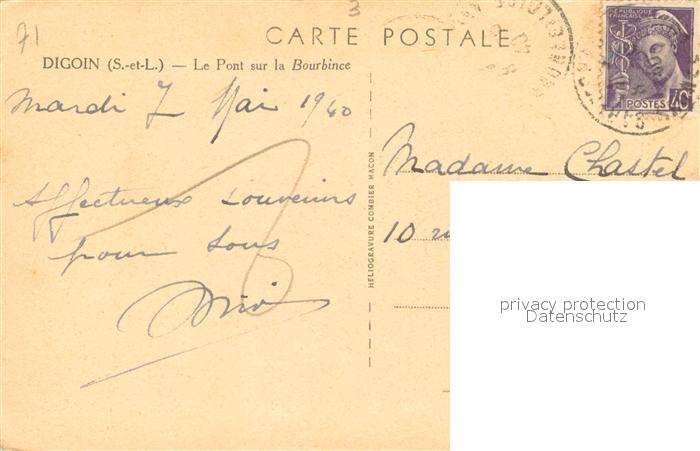 71
3
CARTE POSTALE
DIGOIN (S.-et-L.) — Le Pont sur la Bourbince
RÉPUBLIQUE FRANÇAISE
POSTES 40c
Mardi 7 Mai 1940
Madame Chastel
Affectueux Souvenirs
10
pour tous
HÉLIOGRAVURE COMBIER MACON
privacy protection
Datenschutz